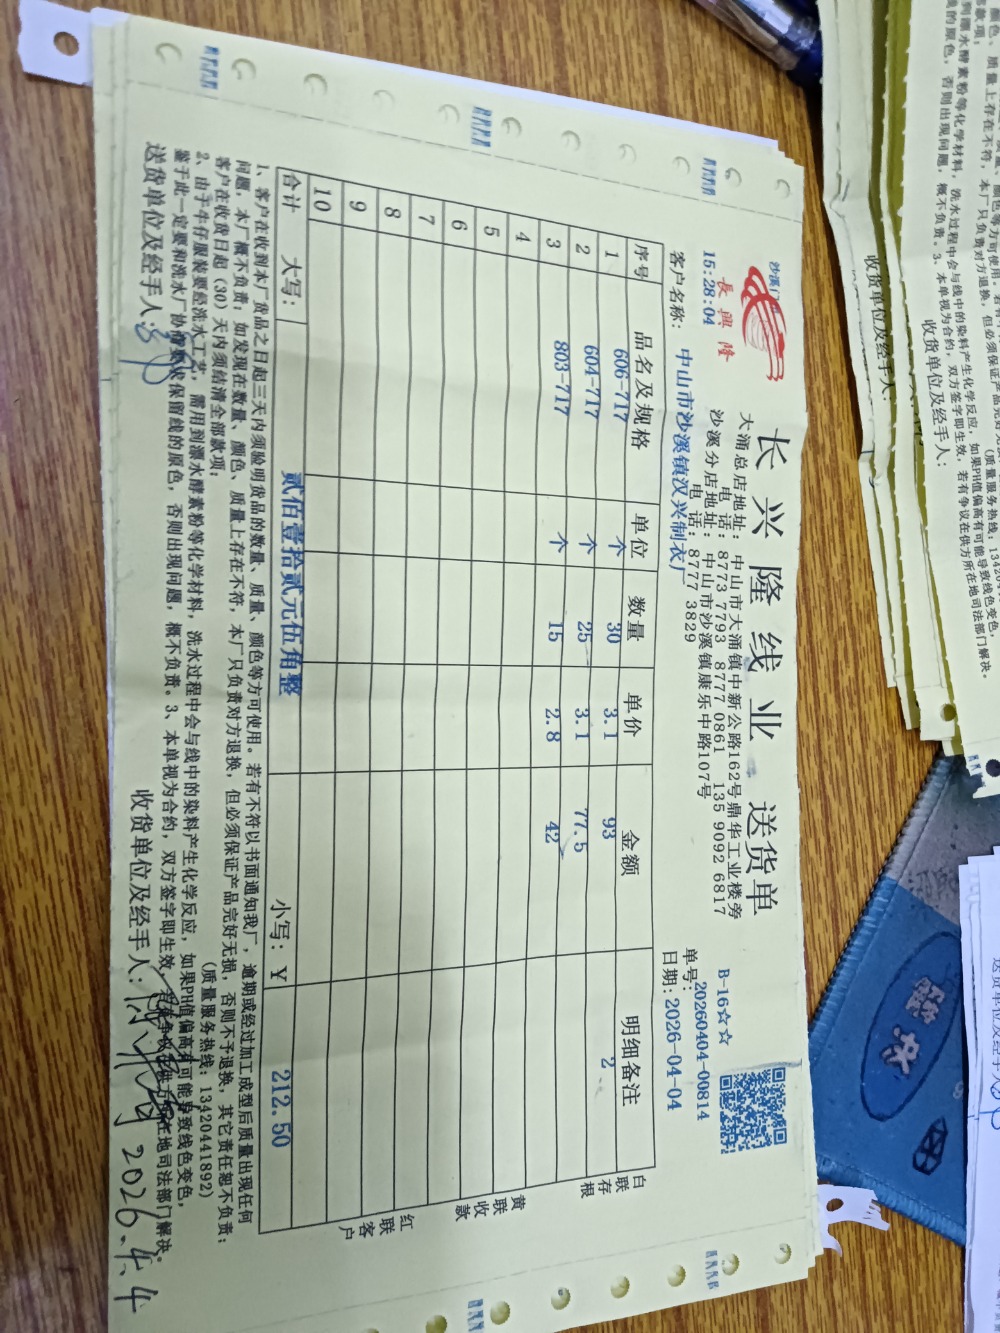 长兴隆线业 送货单
沙溪门
長興隆
15:28:04
大涌总店地址: 中山市大涌镇中新公路162号鼎华工业楼旁
电 话: 8773 7793 8777 0861 135 9092 6817
沙溪分店地址: 中山市沙溪镇康乐中路107号
电 话: 8777 3829
B-16☆☆
单号: 20260404-00814
日期: 2026-04-04
客户名称: 中山市沙溪镇汉兴制衣厂
序号 品名及规格 单位 数量 单价 金额 明细备注
1 606-717 个 30 3.1 93 2
2 604-717 个 25 3.1 77.5
3 803-717 个 15 2.8 42
4
5
6
7
8
9
10
合计 大写: 贰佰壹拾贰元伍角整 小写: Y 212.50
白联存根
黄联收款
红联客户
1、客户在收到本厂货品之日起三天内须验明货品的数量、质量、颜色等方可使用。若有不符以书面通知我厂,逾期或经过加工成型后质量出现任何
问题,本厂概不负责;如发现在数量、颜色、质量上存在不符,本厂只负责对方退换,但必须保证产品完好无损,否则不予退换,其它责任恕不负责;
客户在收货日起(30)天内须结清全部款项;
(质量服务热线: 13420441892)
2、由于牛仔服装要经洗水工艺,需用到漂水酵素粉等化学材料,洗水过程中会与线中的染料产生化学反应,如果PH值偏高有可能导致线色变色,
鉴于此一定要和洗水厂协商要求保留线的原色,否则出现问题,概不负责。3、本单视为合约,双方签字即生效,若有争议在供方所在地司法部门解决。
送货单位及经手人:
收货单位及经手人:
2026.4.4
收货单位及经手人:
收货单位及经手人:
解决